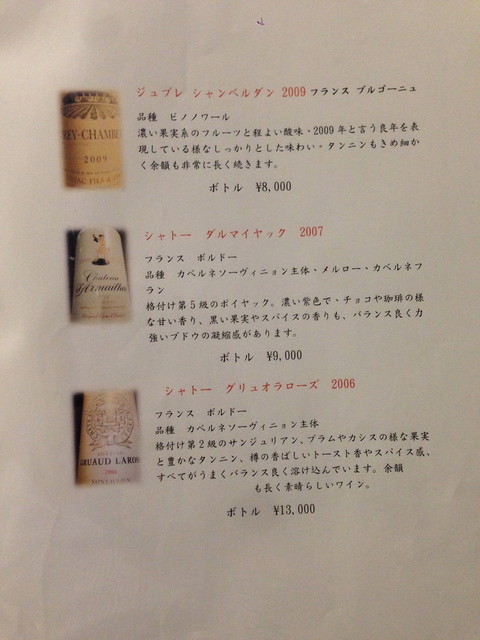 ジュブレ シャンベルダン 2009 フランス ブルゴーニュ
品種 ピノノワール
濃い果実系のフルーツと程よい酸味・2009年と言う良年を表
現している様なしっかりとした味わい・タンニンもきめ細か
く余韻も非常に長く続きます。
ボトル ¥8,000
REY-CHAMBE
2009
シャトー ダルマイヤック 2007
フランス ボルドー
品種 カベルネソーヴィニョン主体・メルロー・カベルネフ
ラン
格付け第5級のポイヤック。濃い紫色で・チョコや珈琲の様
な甘い香り、黒い果実やスパイスの香りも、バランス良く力
強いブドウの凝縮感があります。
ボトル ¥9,000
Château
d'Armailhac
シャトー グリュオラローズ 2006
フランス ボルドー
品種 カベルネソーヴィニョン主体
格付け第2級のサンジュリアン、プラムやカシスの様な果実
と豊かなタンニン、樽の香ばしいトースト香やスパイス感、
すべてがうまくバランス良く溶け込んでいます。余韻
も長く素晴らしいワイン。
ボトル ¥13,000
RUAUD LAROS
2006